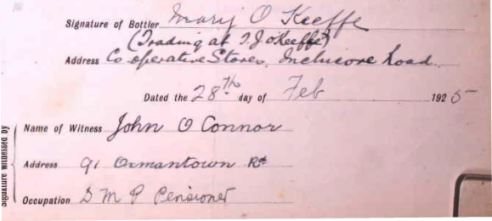 Signature of Bottler Mary O Keeffe
(Trading at T. J O'Keeffe)
Address Co operative Stores, Inchicore Road.
Dated the 28th day of Feb 1925
Name of Witness John O Connor
Address 91 Ormantown Rd
Occupation D M P Pensioner